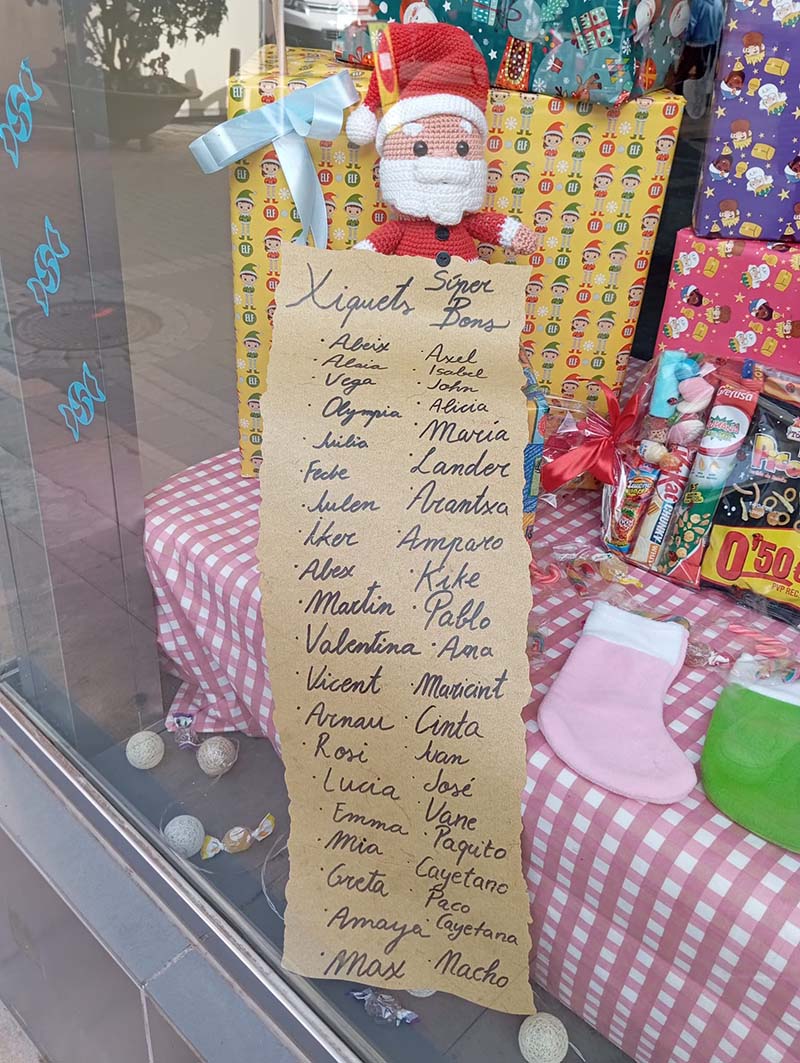 Xiquets Súper Bons
· Abeix
· Alaia
· Vega
· Olympia
· Julia
· Febe
· Julen
· Iker
· Alex
· Martin
· Valentina
· Vicent
· Arnau
· Rosi
· Lucia
· Emma
· Mia
· Greta
· Amaya
· Max
· Axel
· Isabel
· John
· Alicia
· María
· Lander
· Arantxa
· Amparo
· Kike
· Pablo
· Ana
· Maricint
· Cinta
· Ivan
· José
· Vane
· Paquito
· Cayetano
· Paco
· Cayetana
· Nacho
ELF
Grefusa
0'50€
PVP REC